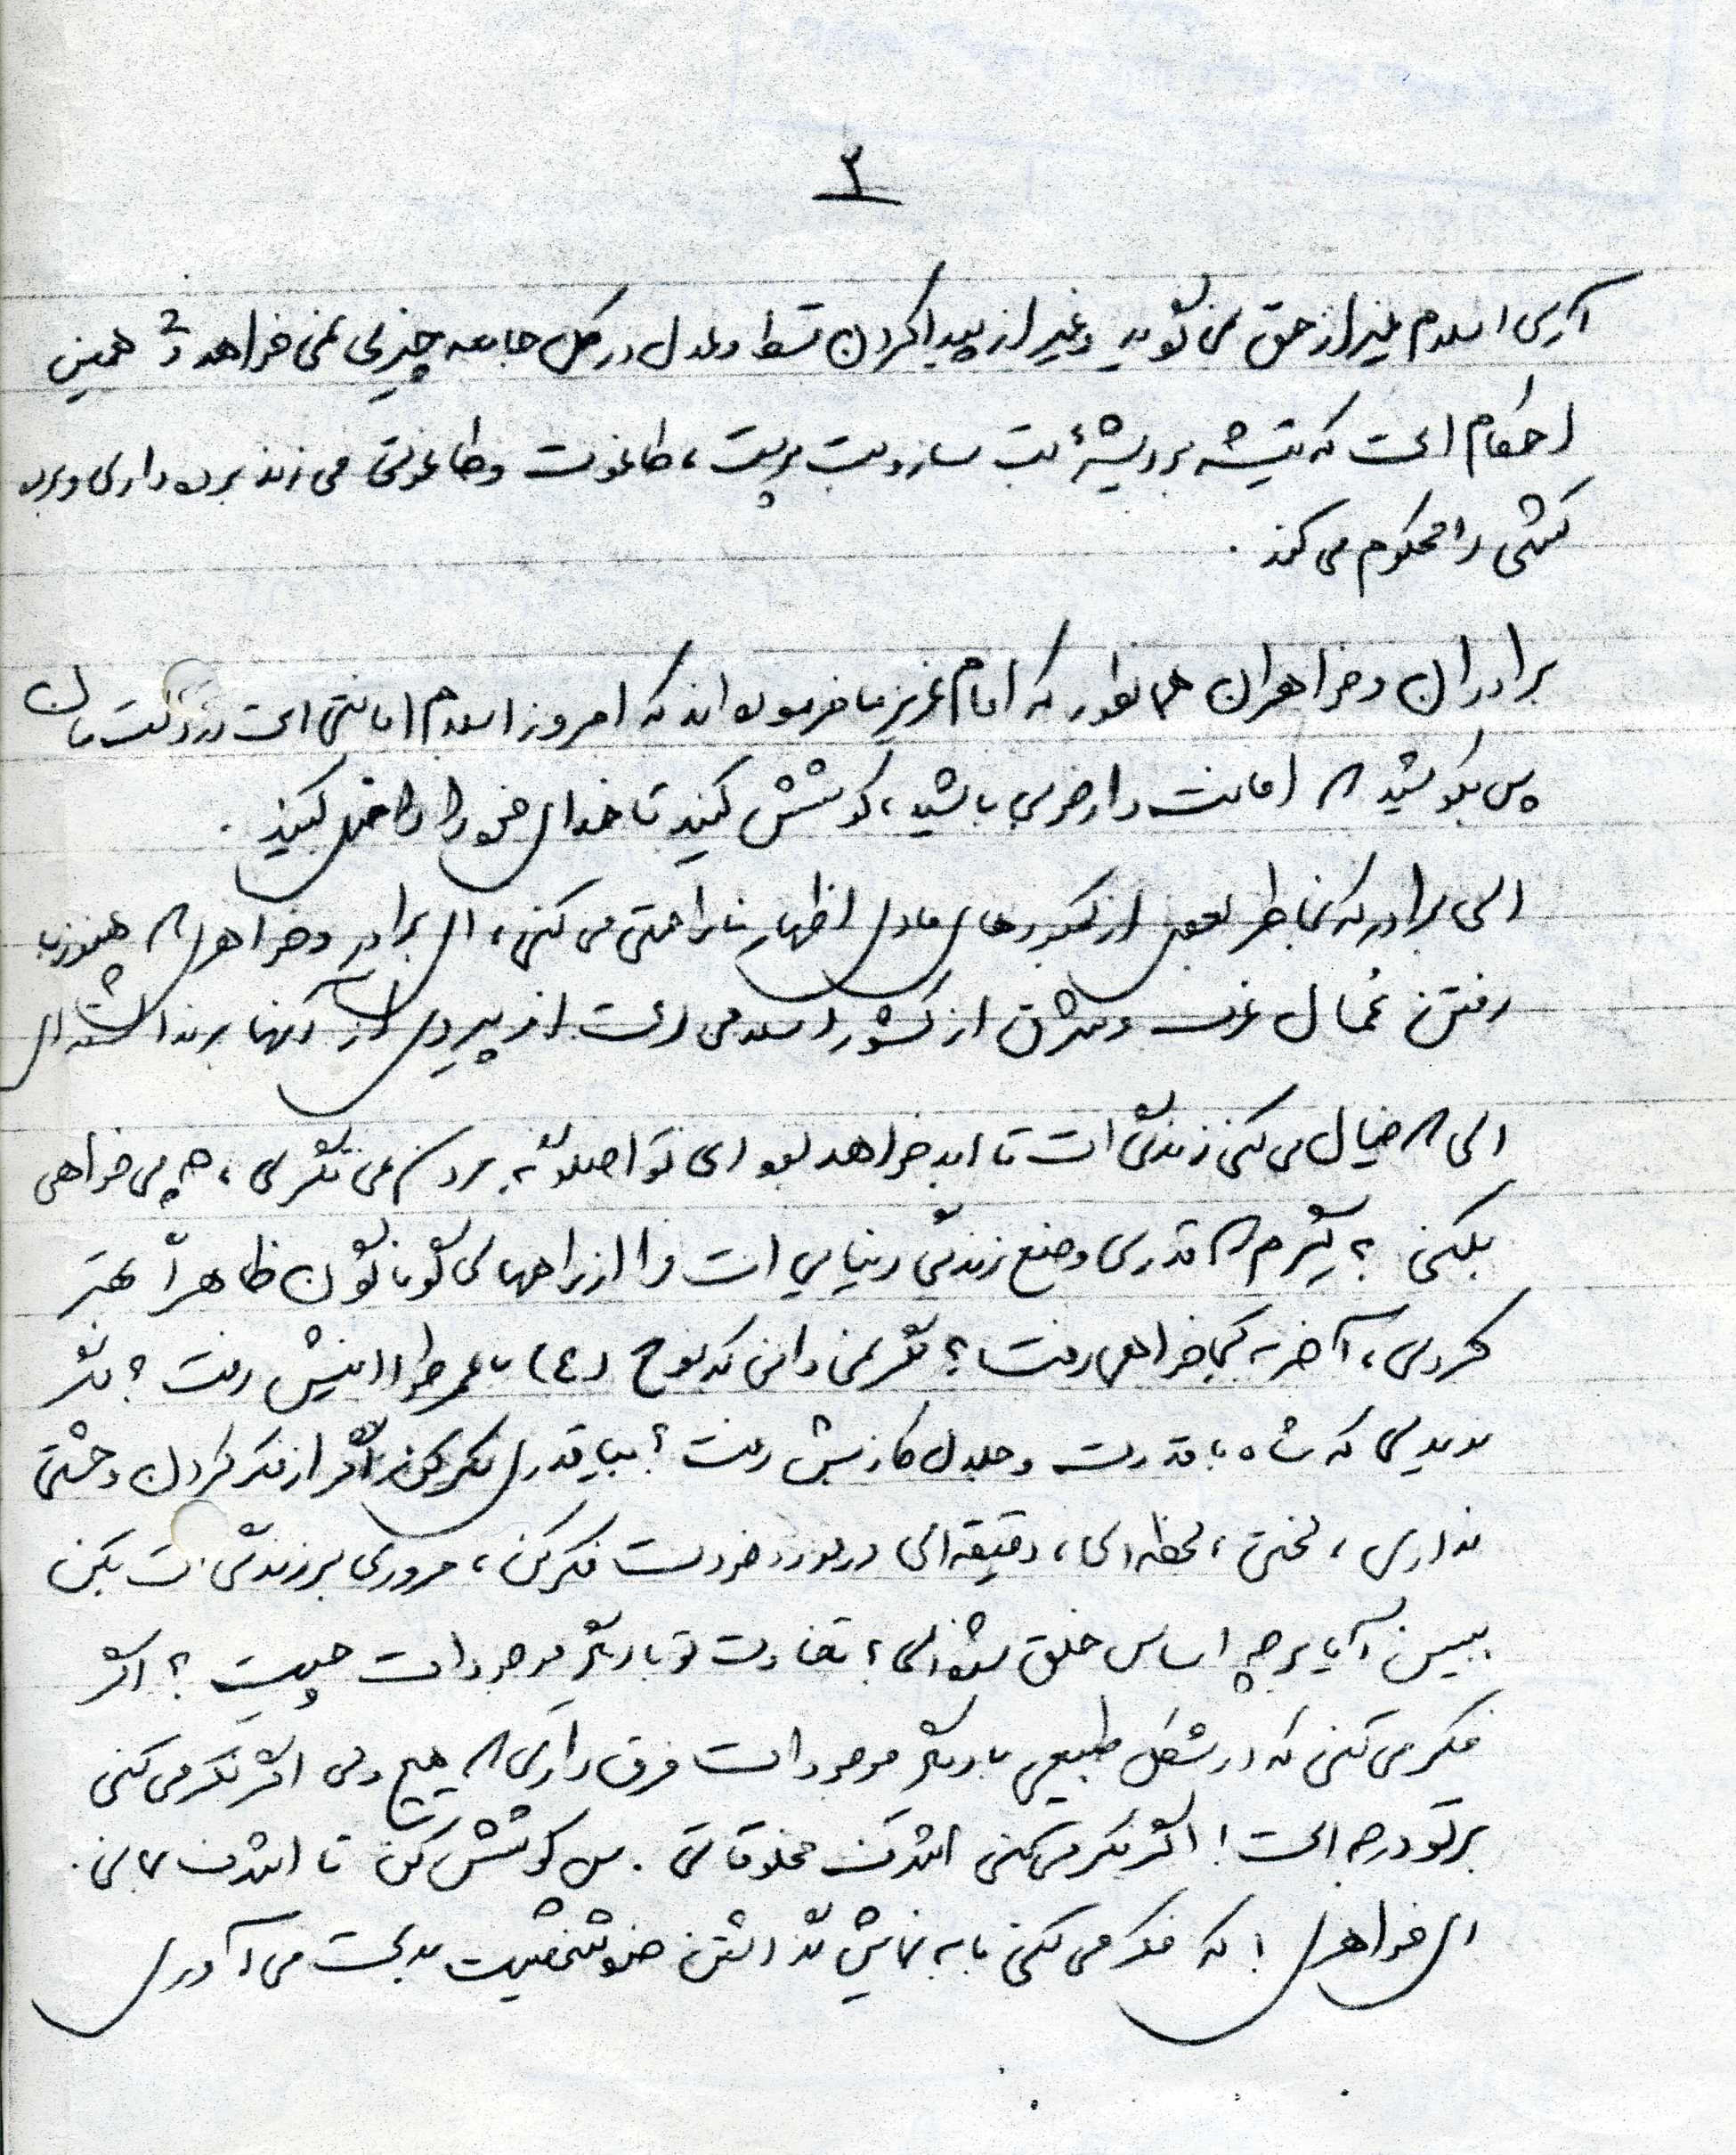 ۲
آری اسلام غیر از حق نمی گوید و غیر از پیدا کردن قسط و عدل در کل جامعه چیزی نمی خواهد و همین
احکام است که تیشه بر ریشهٔ بت ساز و بت پرست، طاغوت و طاغوتی می زند برده داری و برده
کشی را محکوم می کند.
برادران و خواهران همانطور که امام عزیز ما فرموده اند که امروز اسلام امانتی است در دست مان
پس بکوشید که امانت دار خوبی باشید، کوشش کنید تا خدای خود را راضی کنید.
ای برادر که بخاطر بعضی از کمبودهای مادی اظهار ناراحتی می کنی، ای برادر و خواهری که هنوز با
رفتن عُمال غرب و شرق از کشور اسلامی ات از پیروی از آنها برنداشته ای
ای که خیال می کنی زندگی ات تا ابد خواهد بود ای تو اصلاً به مردن نمی نگری، چه می خواهی
بکنی؟ گیرم که قدری وضع زندگی دنیایی ات را از راههای گوناگون ظاهراً بهتر
کردی، آخر به کجا خواهی رفت؟ مگر نمی دانی که نوح (ع) با عمر طولانیش رفت؟ مگر
ندیدی که شاه با قدرت و جلال کاذبش رفت؟ بیا قدری فکر کن اگر از فکر کردن وحشتی
نداری، لختی، لحظه ای، دقیقه ای در مورد خودت فکر کن، مروری بر زندگی ات بکن
ببین آیا بر چه اساس خلق شده ای؟ تفاوت تو با دیگر موجودات چیست؟ اگر
فکر می کنی که در شکل طبیعی با دیگر موجودات فرق داری که هیچ ولی اگر فکر می کنی
برتو درجه است! اگر فکر می کنی اشرف مخلوقاتی. پس کوشش کن تا اشرف بمانی.
ای خواهری! که فکر می کنی با به نمایش گذاشتن خود شخصیت بدست می آوری